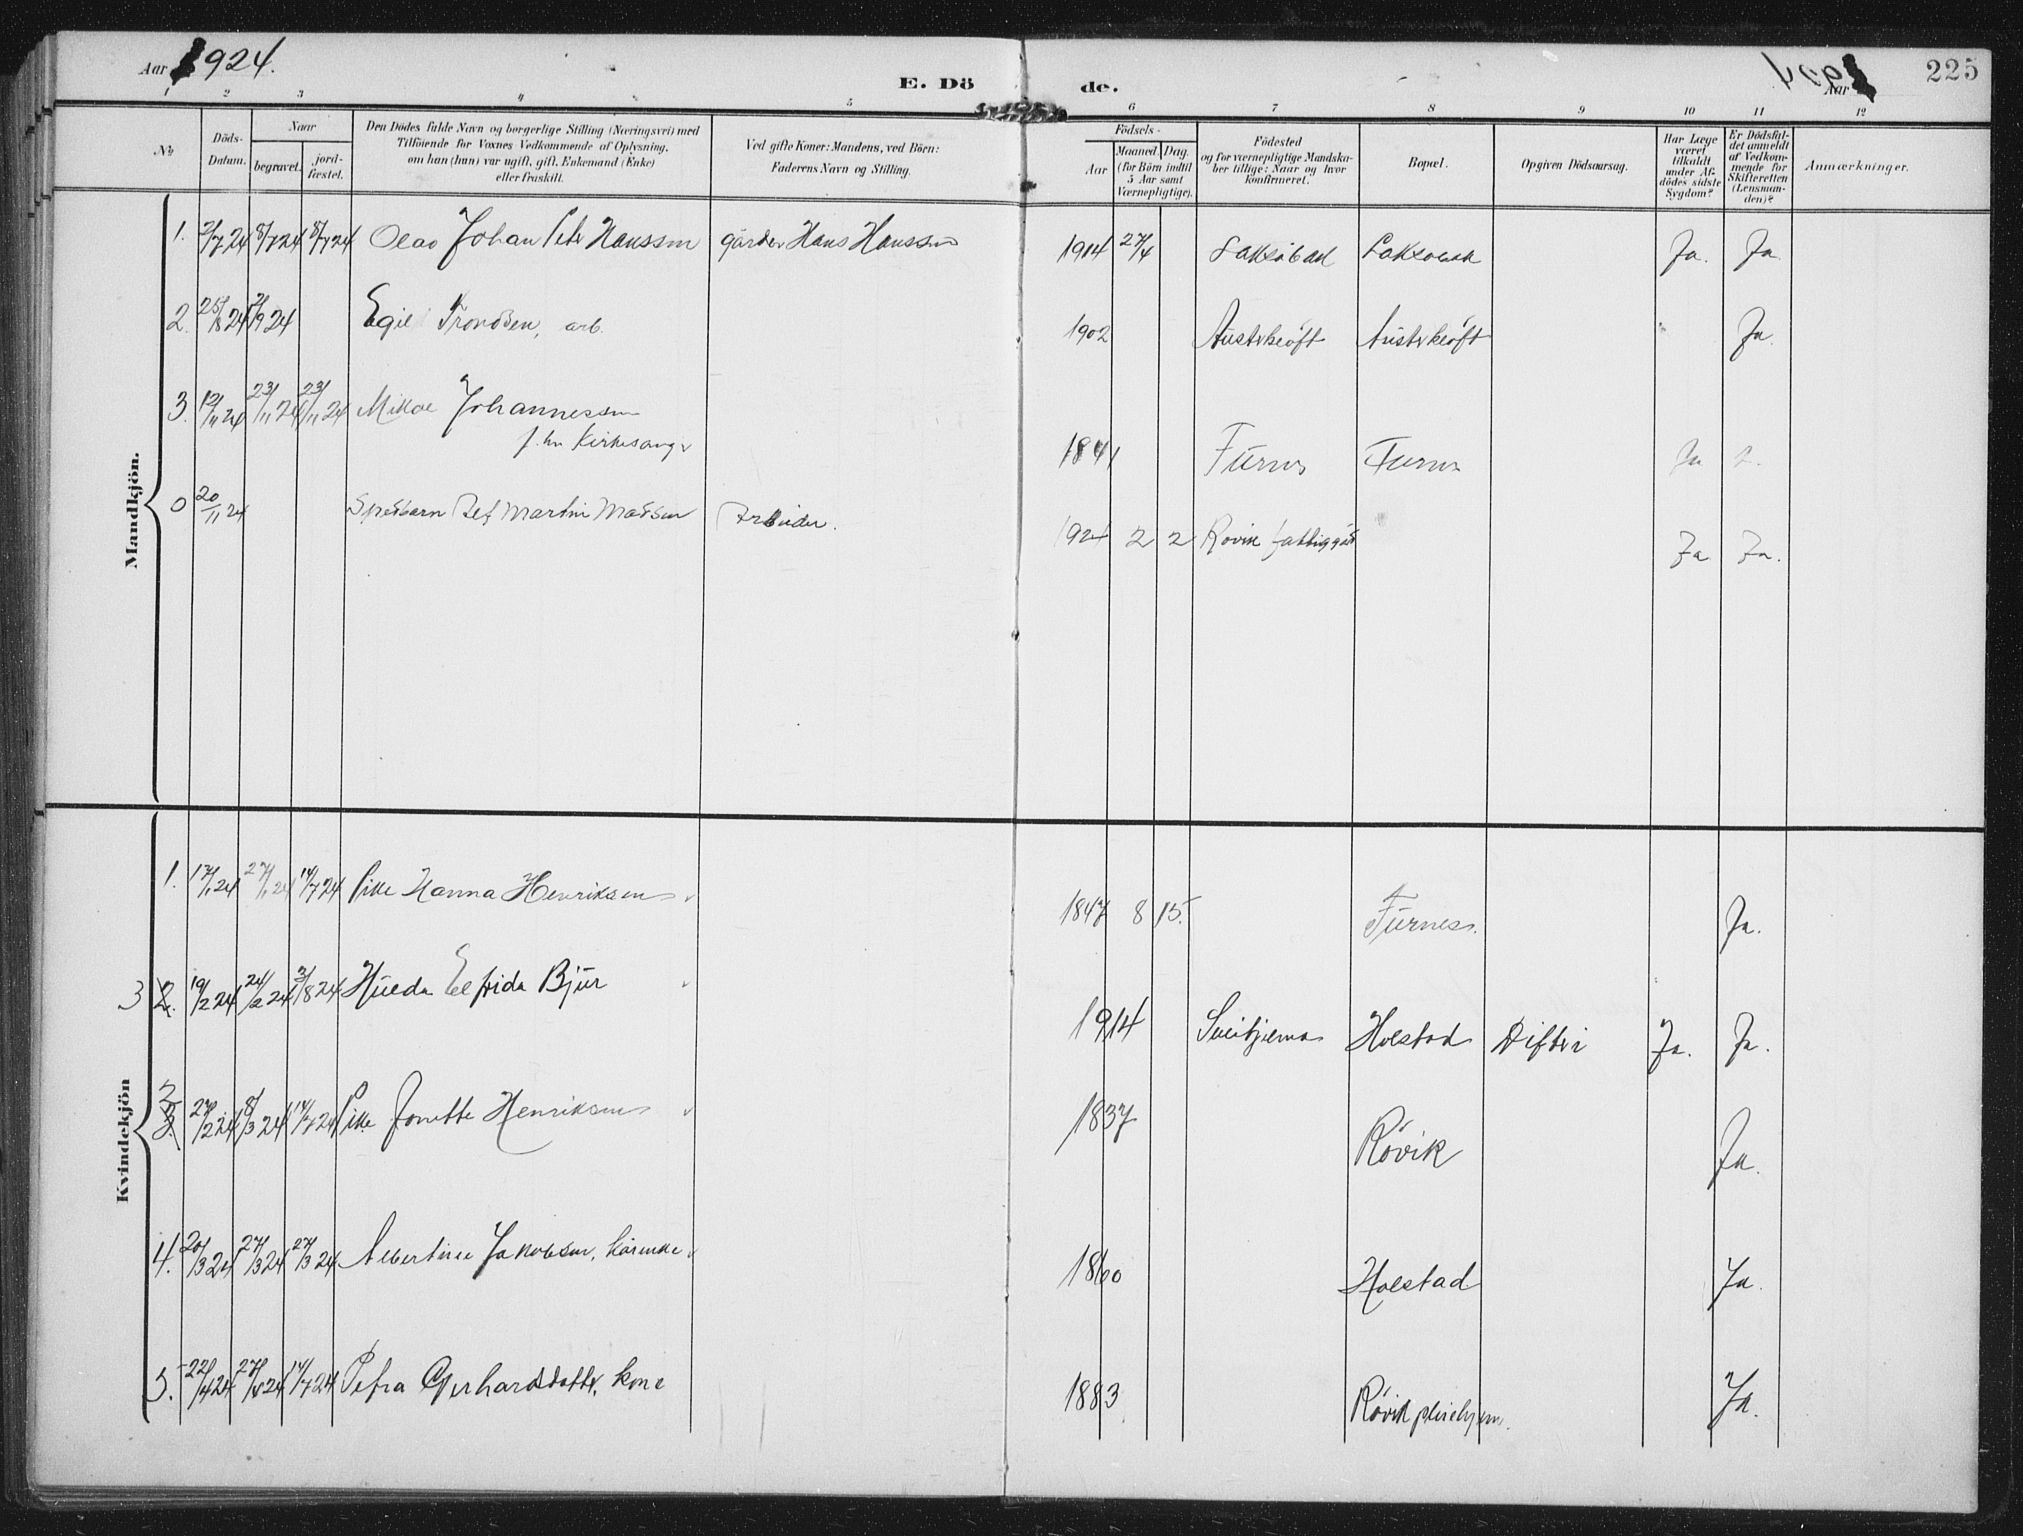 Aar 1924.
E. Döde.
Aar 1924
225
1 2 3 4 5 6 7 8 9 10 11 12
No
Döds-Datum.
Naar
begravet.
jord-fæstet.
Den Dödes fulde Navn og borgerlige Stilling (Næringsvei) med
Tilföiende for Voxnes Vedkommende af Oplysning,
om han (hun) var ugift, gift, Enkemand (Enke)
eller fraskilt.
Ved gifte Koner: Mandens, ved Börn:
Faderens Navn og Stilling.
Födsels-
Aar
Maaned. Dag.
(for Börn indtil
5 Aar samt
Værnepligtige).
Födested
og for værnepligtige Mandska-
ber tillige: Naar og hvor
konfirmeret.
Bopæl.
Opgiven Dödsaarsag.
Har Læge
været
tilkaldt
under Af-
dödes sidste
Sygdom?
Er Dödsfal-
det anmeldt
af Vedkom-
mende for
Skifteretten
(Lensman-
den)?
Anmærkninger.
Mandkjön.
1. 2/7 24 8/7 24 8/7 24 Olav Johan Peter Hanssen gårdbr Hans Hanssen 1914 27/4 Laksåbad Ja. Ja
2. 25/8 24 2/9 24 Egil Trondsen, arb. 1902 Austerkløft Austerkløft Ja.
3. 12/11 24 23/11 24 23/11 24 Mikal Johannessen
f. hv. Kirkesanger 1841 Furnes Furnes Ja
0 20/11 24 Spedbarn Det Martin Madsen Arbeider. 1924 2 2 Røvik fattiggård Ja Ja.
Kvindekjön
1. 17/1 24 27/1 24 14/7 24 Pike Hanna Henriksen 1847 8 15. Furness. Ja.
3 2. 19/2 24 24/2 24 3/8 24 Hulda Elfrida Bjur 1914 Sulitjelma Holstad Difteri Ja. Ja.
2 3. 27/2 24 8/3 24 14/7 24 Pike Jonette Henriksen 1837 Røvik Ja.
4. 20/3 24 27/3 24 27/3 24 Albertine Jakobsen, kårenke 1860 Holstad Ja.
5. 22/4 24 27/4 24 14/7 24 Petra Gerhardsdatter, kone 1883 Røvik pleiehjem. Ja.